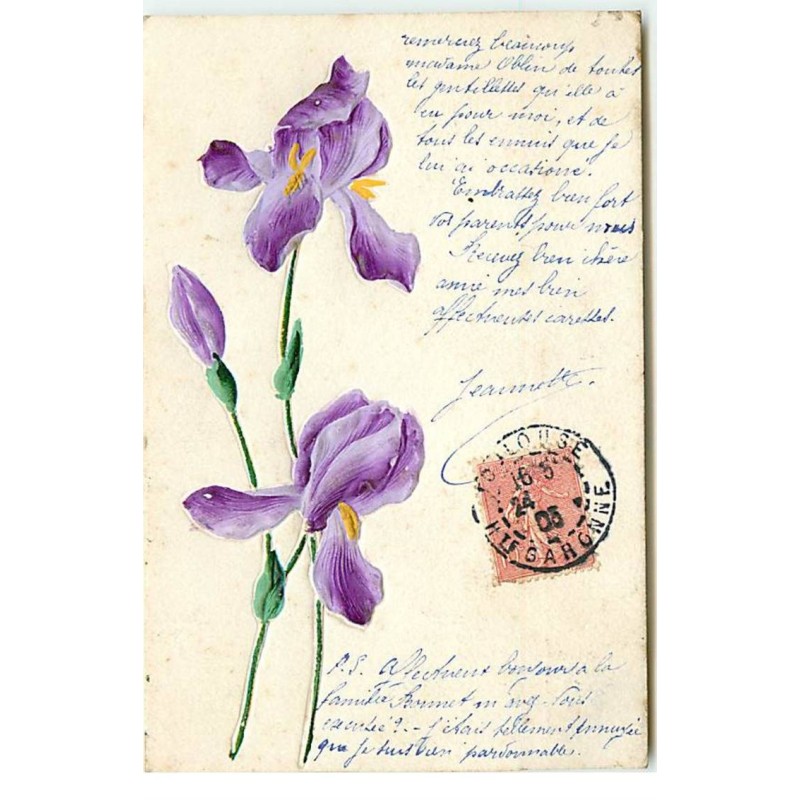 remerciez beaucoup
madame Oblin de toutes
les gentillettes qu'elle a
eu pour moi, et de
tous les ennuis que je
lui ai occasionné.
Embrassez bien fort
vos parents pour nous
Recevez bien chère
amie mes bien
affectueuses caresses.
Jeannette.
TOULOUSE
16 5
24
05
HTE GARONNE
P.S. Affectueux bonjours à la
famille Bonnet m'avez-vous
excusée? - j'étais tellement ennuyée
que je suis bien pardonnable.